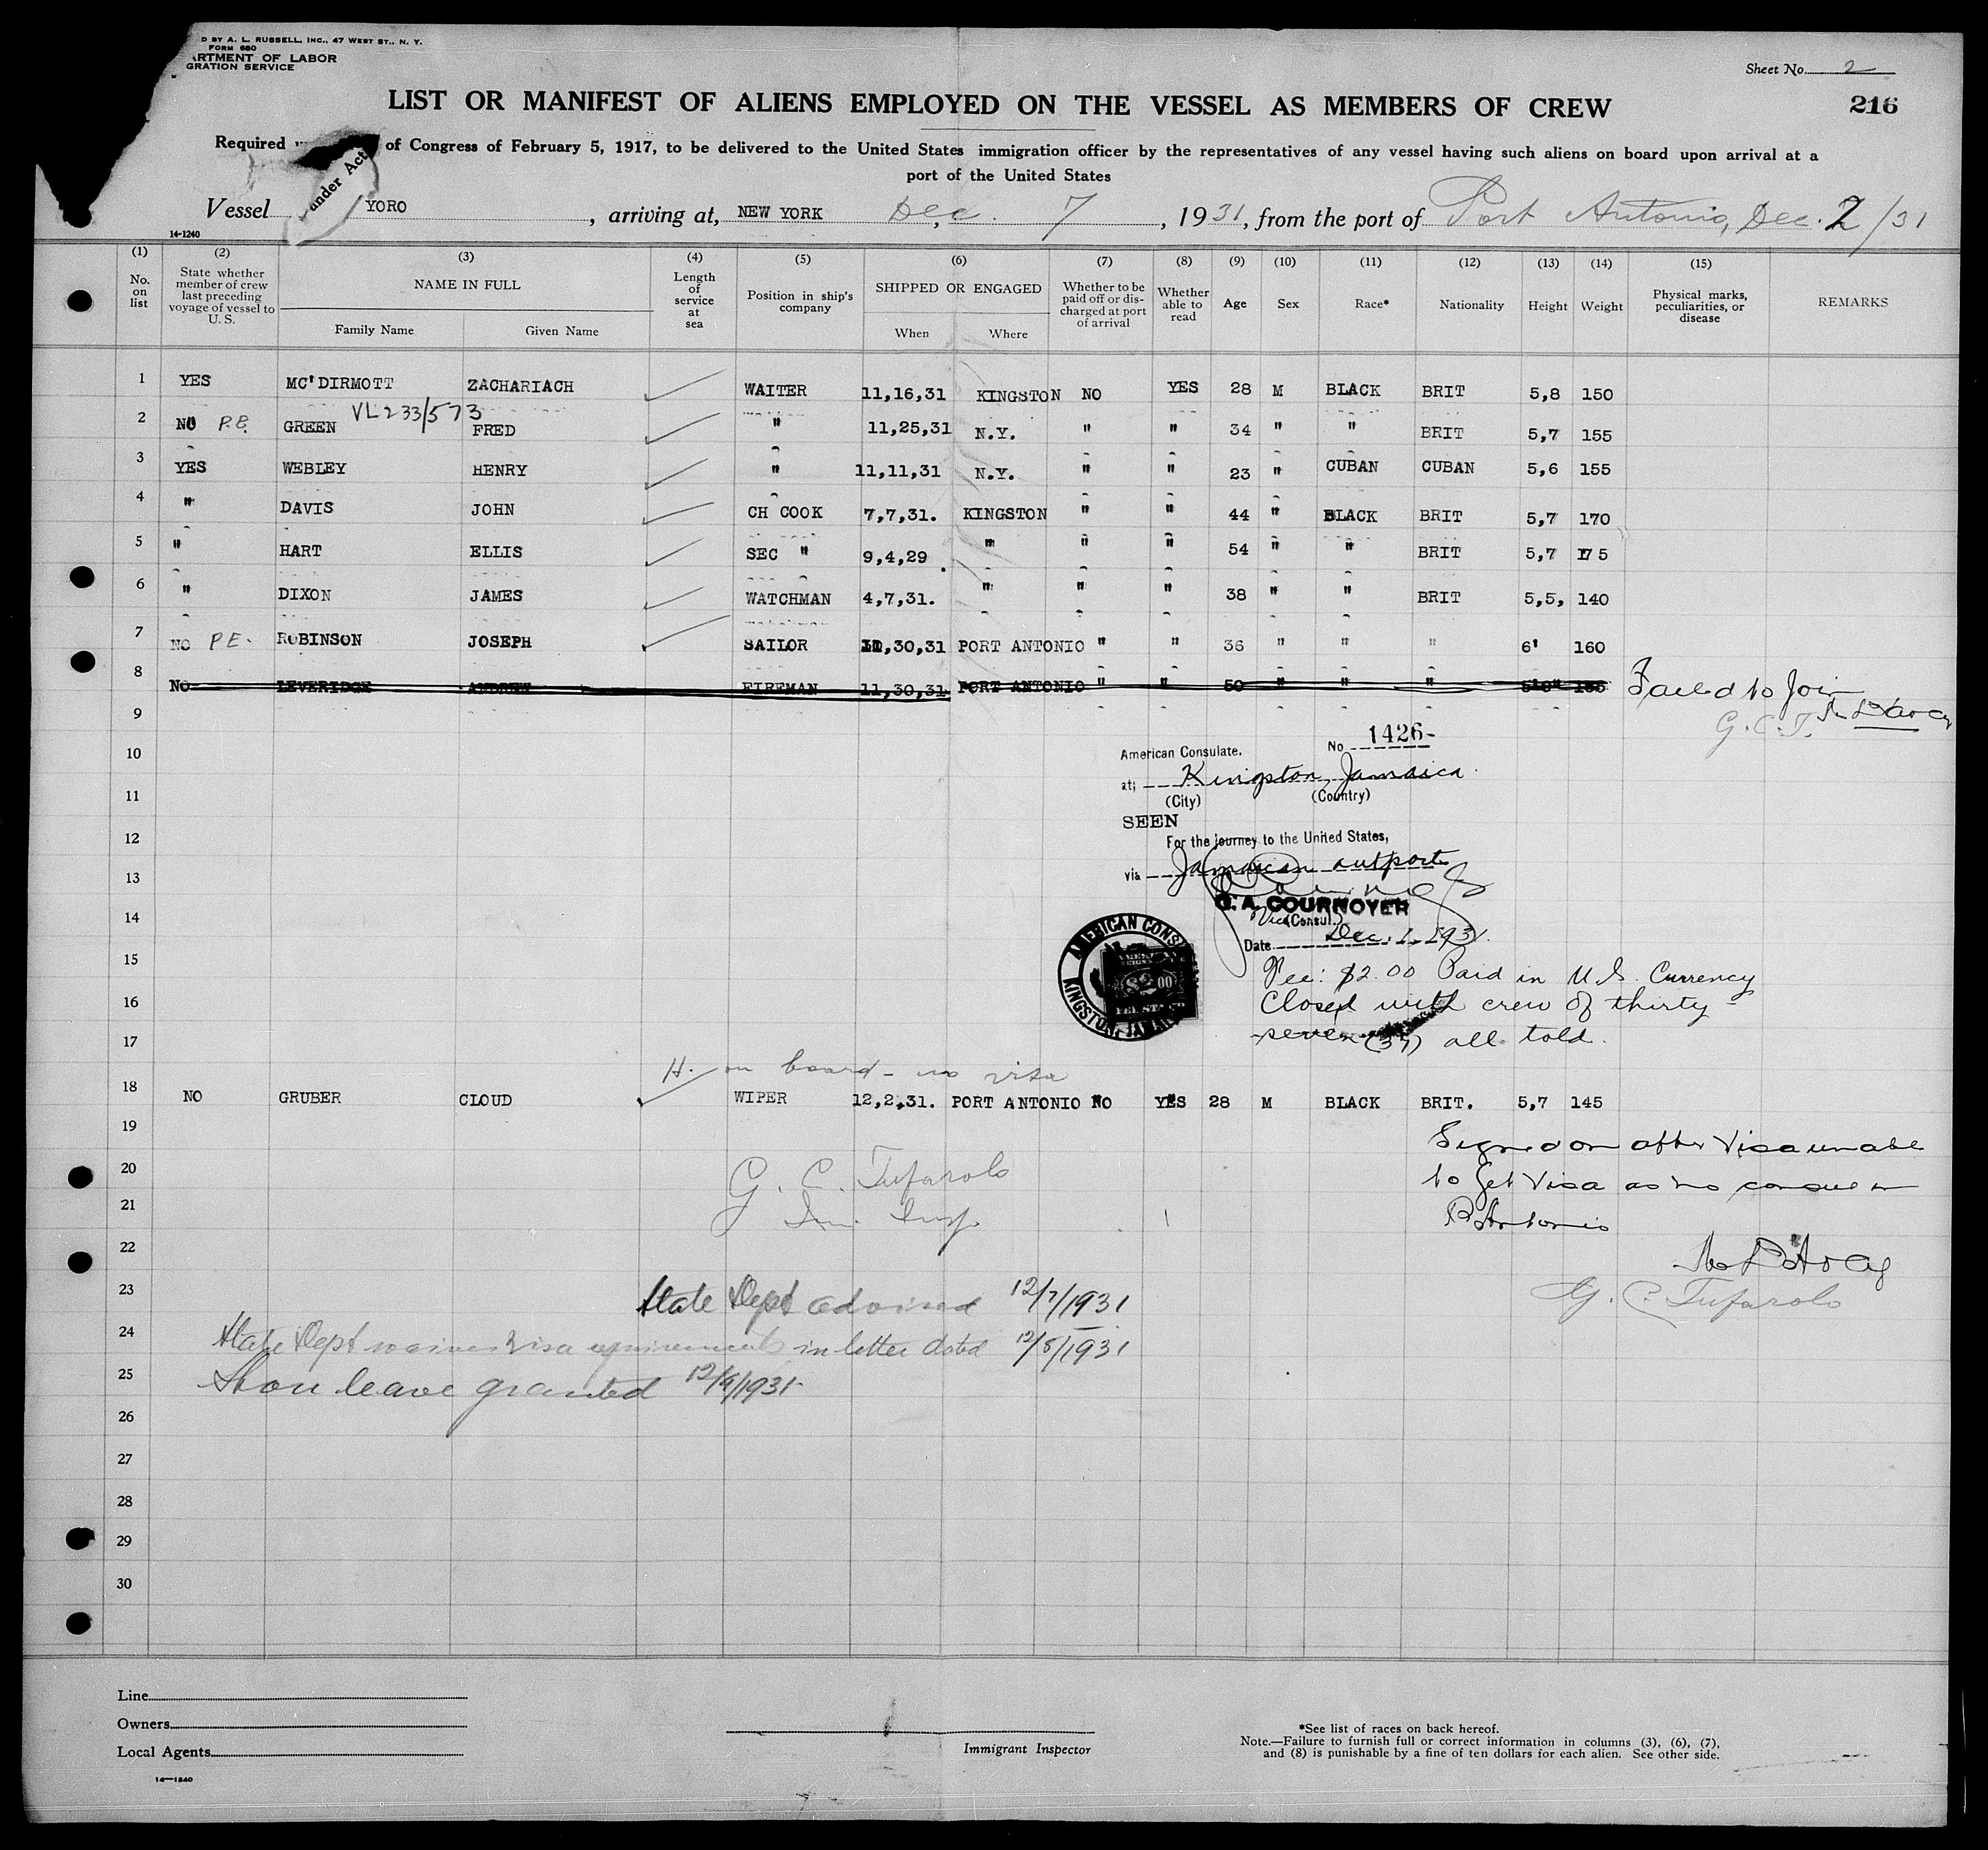 D BY A. L. RUSSELL, INC., 47 WEST ST., N. Y.
FORM 680
ARTMENT OF LABOR
GRATION SERVICE
Sheet No. 2
LIST OR MANIFEST OF ALIENS EMPLOYED ON THE VESSEL AS MEMBERS OF CREW
216
Required under Act of Congress of February 5, 1917, to be delivered to the United States immigration officer by the representatives of any vessel having such aliens on board upon arrival at a
port of the United States
Vessel YORO, arriving at, NEW YORK Dec. 7, 1931, from the port of Port Antonio, Dec. 2/31
14-1240
(1) (2) (3) (4) (5) (6) (7) (8) (9) (10) (11) (12) (13) (14) (15)
No. on list
State whether member of crew last preceding voyage of vessel to U. S.
NAME IN FULL
Family Name
Given Name
Length of service at sea
Position in ship's company
SHIPPED OR ENGAGED
When
Where
Whether to be paid off or discharged at port of arrival
Whether able to read
Age
Sex
Race*
Nationality
Height
Weight
Physical marks, peculiarities, or disease
REMARKS
1 YES MC'DIRMOTT ZACHARIACH WAITER 11,16,31 KINGSTON NO YES 28 M BLACK BRIT 5,8 150
VL233/573
2 NO P.E. GREEN FRED " 11,25,31 N.Y. " " 34 " " BRIT 5,7 155
3 YES WEBLEY HENRY " 11,11,31 N.Y. " " 23 " CUBAN CUBAN 5,6 155
4 " DAVIS JOHN CH COOK 7,7,31. KINGSTON " " 44 " BLACK BRIT 5,7 170
5 " HART ELLIS SEC " 9,4,29 " " " 54 " " BRIT 5,7 175
6 " DIXON JAMES WATCHMAN 4,7,31. " " " 38 " " BRIT 5,5, 140
7 NO P.E. ROBINSON JOSEPH SAILOR 11,30,31 PORT ANTONIO " " 36 " " " 6' 160
8 NO LEVERIDGE ANDREW FIREMAN 11,30,31 PORT ANTONIO " " 50 " " "
Failed to Join
G. C. T.
9
10
11
12
13
14
15
16
17
American Consulate. No 1426-
at; Kingston, Jamaica.
(City) (Country)
SEEN
For the journey to the United States,
via Jamaican outports
G. A. COURNOYER
Vice Consul.
Date Dec. 1, 1931.
AMERICAN CONSU
KINGSTON, JAMAI
$2.00
FEE STAMP
Fee: $2.00 Paid in U.S. Currency
Closed with crew of thirty-
seven (37) all told.
H. on board - no visa
18 NO GRUBER CLOUD WIPER 12,2,31. PORT ANTONIO NO YES 28 M BLACK BRIT. 5,7 145
Signed on after Visa unable
to Get Visa as no consul in
P. Antonio
G. C. Tufarolo
Im. Insp.
G. C. Tufarolo
19
20
21
22
23
State Dept advised 12/7/1931
24
State Dept waives visa requirements in letter dated 12/8/1931
25
Shore leave granted 12/9/1931
26
27
28
29
30
Line
Owners
Local Agents
14-1240
Immigrant Inspector
*See list of races on back hereof.
Note.—Failure to furnish full or correct information in columns (3), (6), (7),
and (8) is punishable by a fine of ten dollars for each alien. See other side.